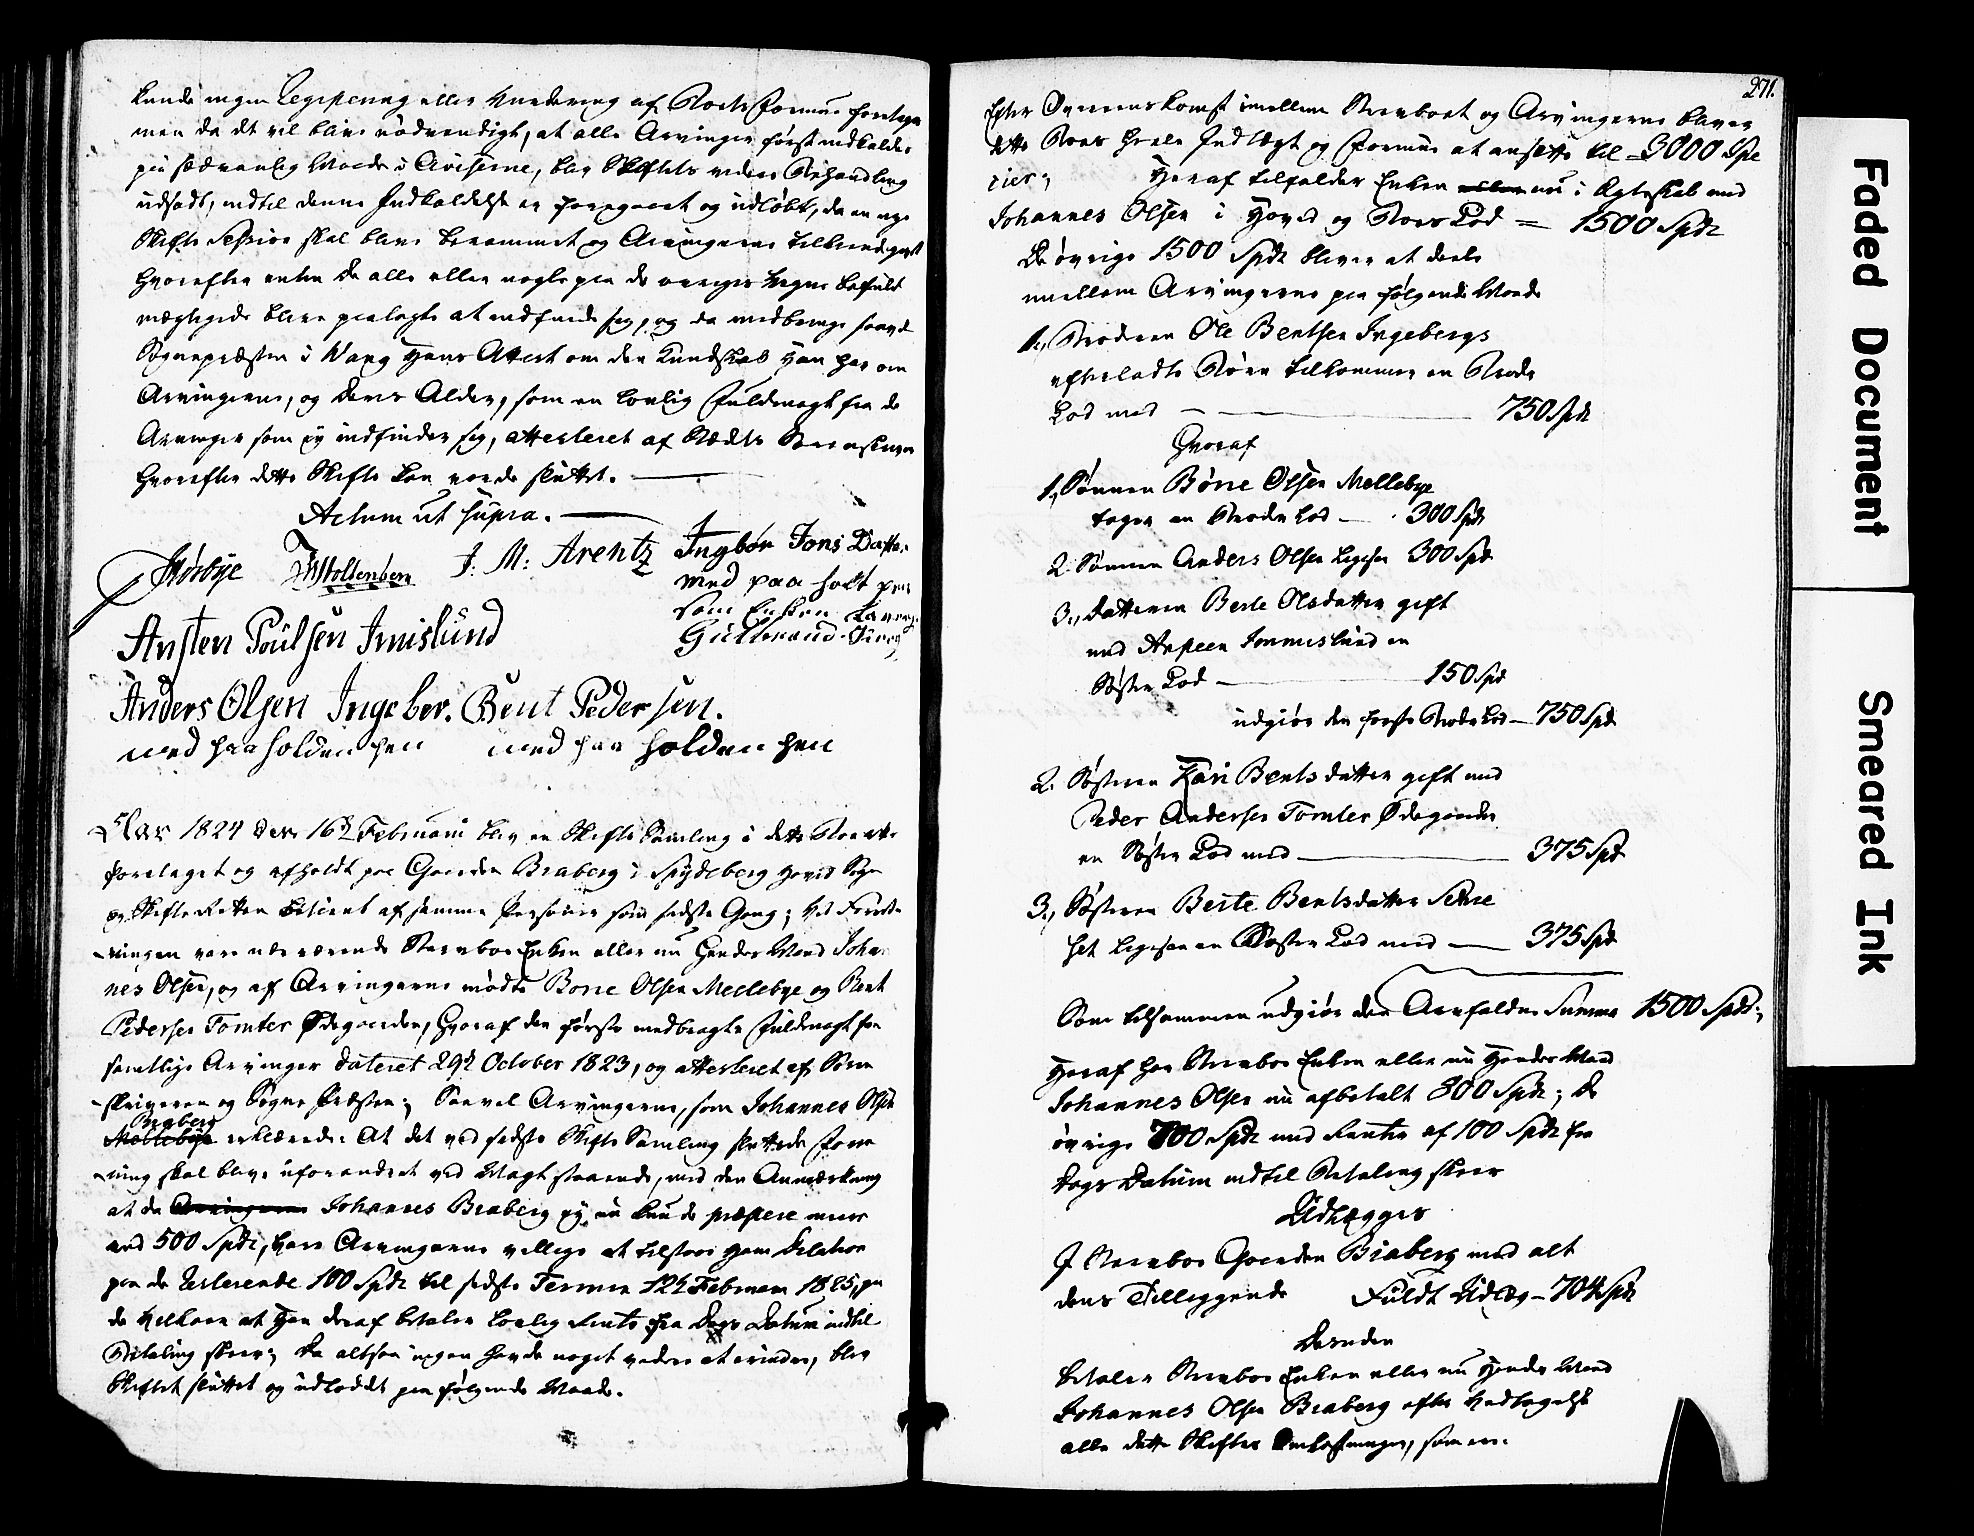 kunde ingen Registering eller Vurdering af Boets Formue foretages
men da det vil blive nødvendigt, at alle Arvinger først indkaldes
paa sædvanlig Maade i Aviserne, blev Skiftets videre Behandling
udsadt, indtil denne Indkaldelse er foregaaet og udløbet, da en nye
Skifte Session skal blive berammet og Arvingerne tilkiendegivet
hvorefter enten de alle eller nogle paa de øvriges Vegne befuld
mægtigede blive paalagte at indfinde sig, og da medbringe saavel
Sognepræsten i Wang Hans Attest om den Kundskab Han har om
Arvingerne, og deres Alder, som en lovlig Fuldmagt fra de
Arvinger som ej indfinder sig, attesteret af Stedets Sorenskriver
hvorefter dette Skifte kan vorde sluttet.
Actum ut supra.
Mørbye Stoltenberg J. M. Arentz Ingbør Jons Datter
med paa holt pen
som Enken Laverg.
Gulbrand
Ansten Poulsen Imislund
Anders Olsen Ingeber. Bent Peder sen.
med paa holden pen med paa holden pen
Aar 1824 den 16de Februarii blev en Skifte Samling i dette Boe atter
foretaget og afholdt paa Gaarden Braberg i Spydeberg Hoved Sogn
og Skifte Retten betient af samme Personer som sidste Gang; Ved Forret-
ningen vare nærværende Stervboe Enken eller nu Hendes Mand Johan-
nes Olsen, og af Arvingerne mødte Børre Olsen Mellebye og Bent
Pedersen Tomter Ødegaarden, hvoraf den første medbragte Fuldmagt fra
samtlige Arvinger dateret 29de October 1823, og attesteret af Soren
skriveren og Sogne Præsten; Saavel Arvingerne, som Johannes Olsen
Braberg
Mellebye erklærede: At det ved sidste Skifte Samling sluttede Fore
ning skal blive uforandret ved Magt staaende, med den Anmærkning
at da Arvingerne Johannes Braberg ej nu kunde præstere mere
end 500 Spdr, vare Arvingerne villige at tilstaae Ham Dilation
paa de resterende 100 Spdr til sidste Termin 12te Februari 1825, paa
de Vilkaar at Han deraf betaler lovlig Rente fra Dags Datum indtil
Betaling skeer; Da altsaa ingen havde noget videre at erindre, blev
Skiftet sluttet og udloddet paa følgende Maade.
271.
Efter Overenskomst imellem Stervboet og Arvingerne bliver
dette Boes heele Indtægt og Formue at ansætte til = 3000 Spe
cier; Heraf tilfalder Enken eller nu i Ægteskab med
Johannes Olsen i Hoved og Boes Lod = 1500 Spdr
De øvrige 1500 Spdr bliver at deele
imellem Arvingerne paa følgende Maade
1., Broderen Ole Bentsen Ingebergs
efterladte Børn tilkommer en Broder
Lod med 750 Spdr
Hvoraf
1, Sønnen Børre Olsen Mellebye
tager en Broder Lod — 300 Spdr
2. Sønnen Anders Olsen ligesaa 300 Spd
3., Datteren Berte Olsdatter gift
med Ansteen Immislund en
Søster Lod — 150 Spd
udgiør den første Broder Lod — 750 Spd
2. Søsteren Kari Bentsdatter gift med
Peder Andersen Tomter Ødegaarden
en Søster Lod med — 375 Spd
3., Søsteren Berte Bentsdatter
ligesaa en Søster Lod med — 375 Spd
Som tilsammen udgiør den Arvfaldne Summa 1500 Spdr.,
Heraf har Stervboe Enken eller nu Hendes Mand
Johannes Olsen nu afbetalt 800 Spdr; de
øvrige 700 Spdr med Renter af 100 Spdr fra
Dags Datum indtil Betaling skeer
Udlægges
I Stervboe Gaarden Braberg med alt
dens Tilleggende Fuldt Udlæg — 704 Spdr
Desuden
betaler Stervboe Enken eller nu Hendes Mand
Johannes Olsen Braberg efter Vedtagelse
alle dette Skiftes Omkostninger, som er.
Faded Document
Smeared Ink